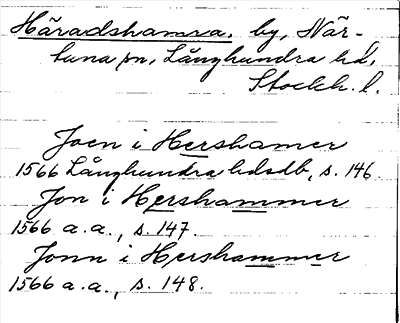 Häradshamra, by, När-
tuna sn, Långhundra hd,
Stockh. l.
Joen i Hershamer
1566 Långhundra hdsdb, s. 146.
Jon i Hershammer
1566 a.a., s. 147.
Jonn i Hershammer
1566 a.a., s. 148.